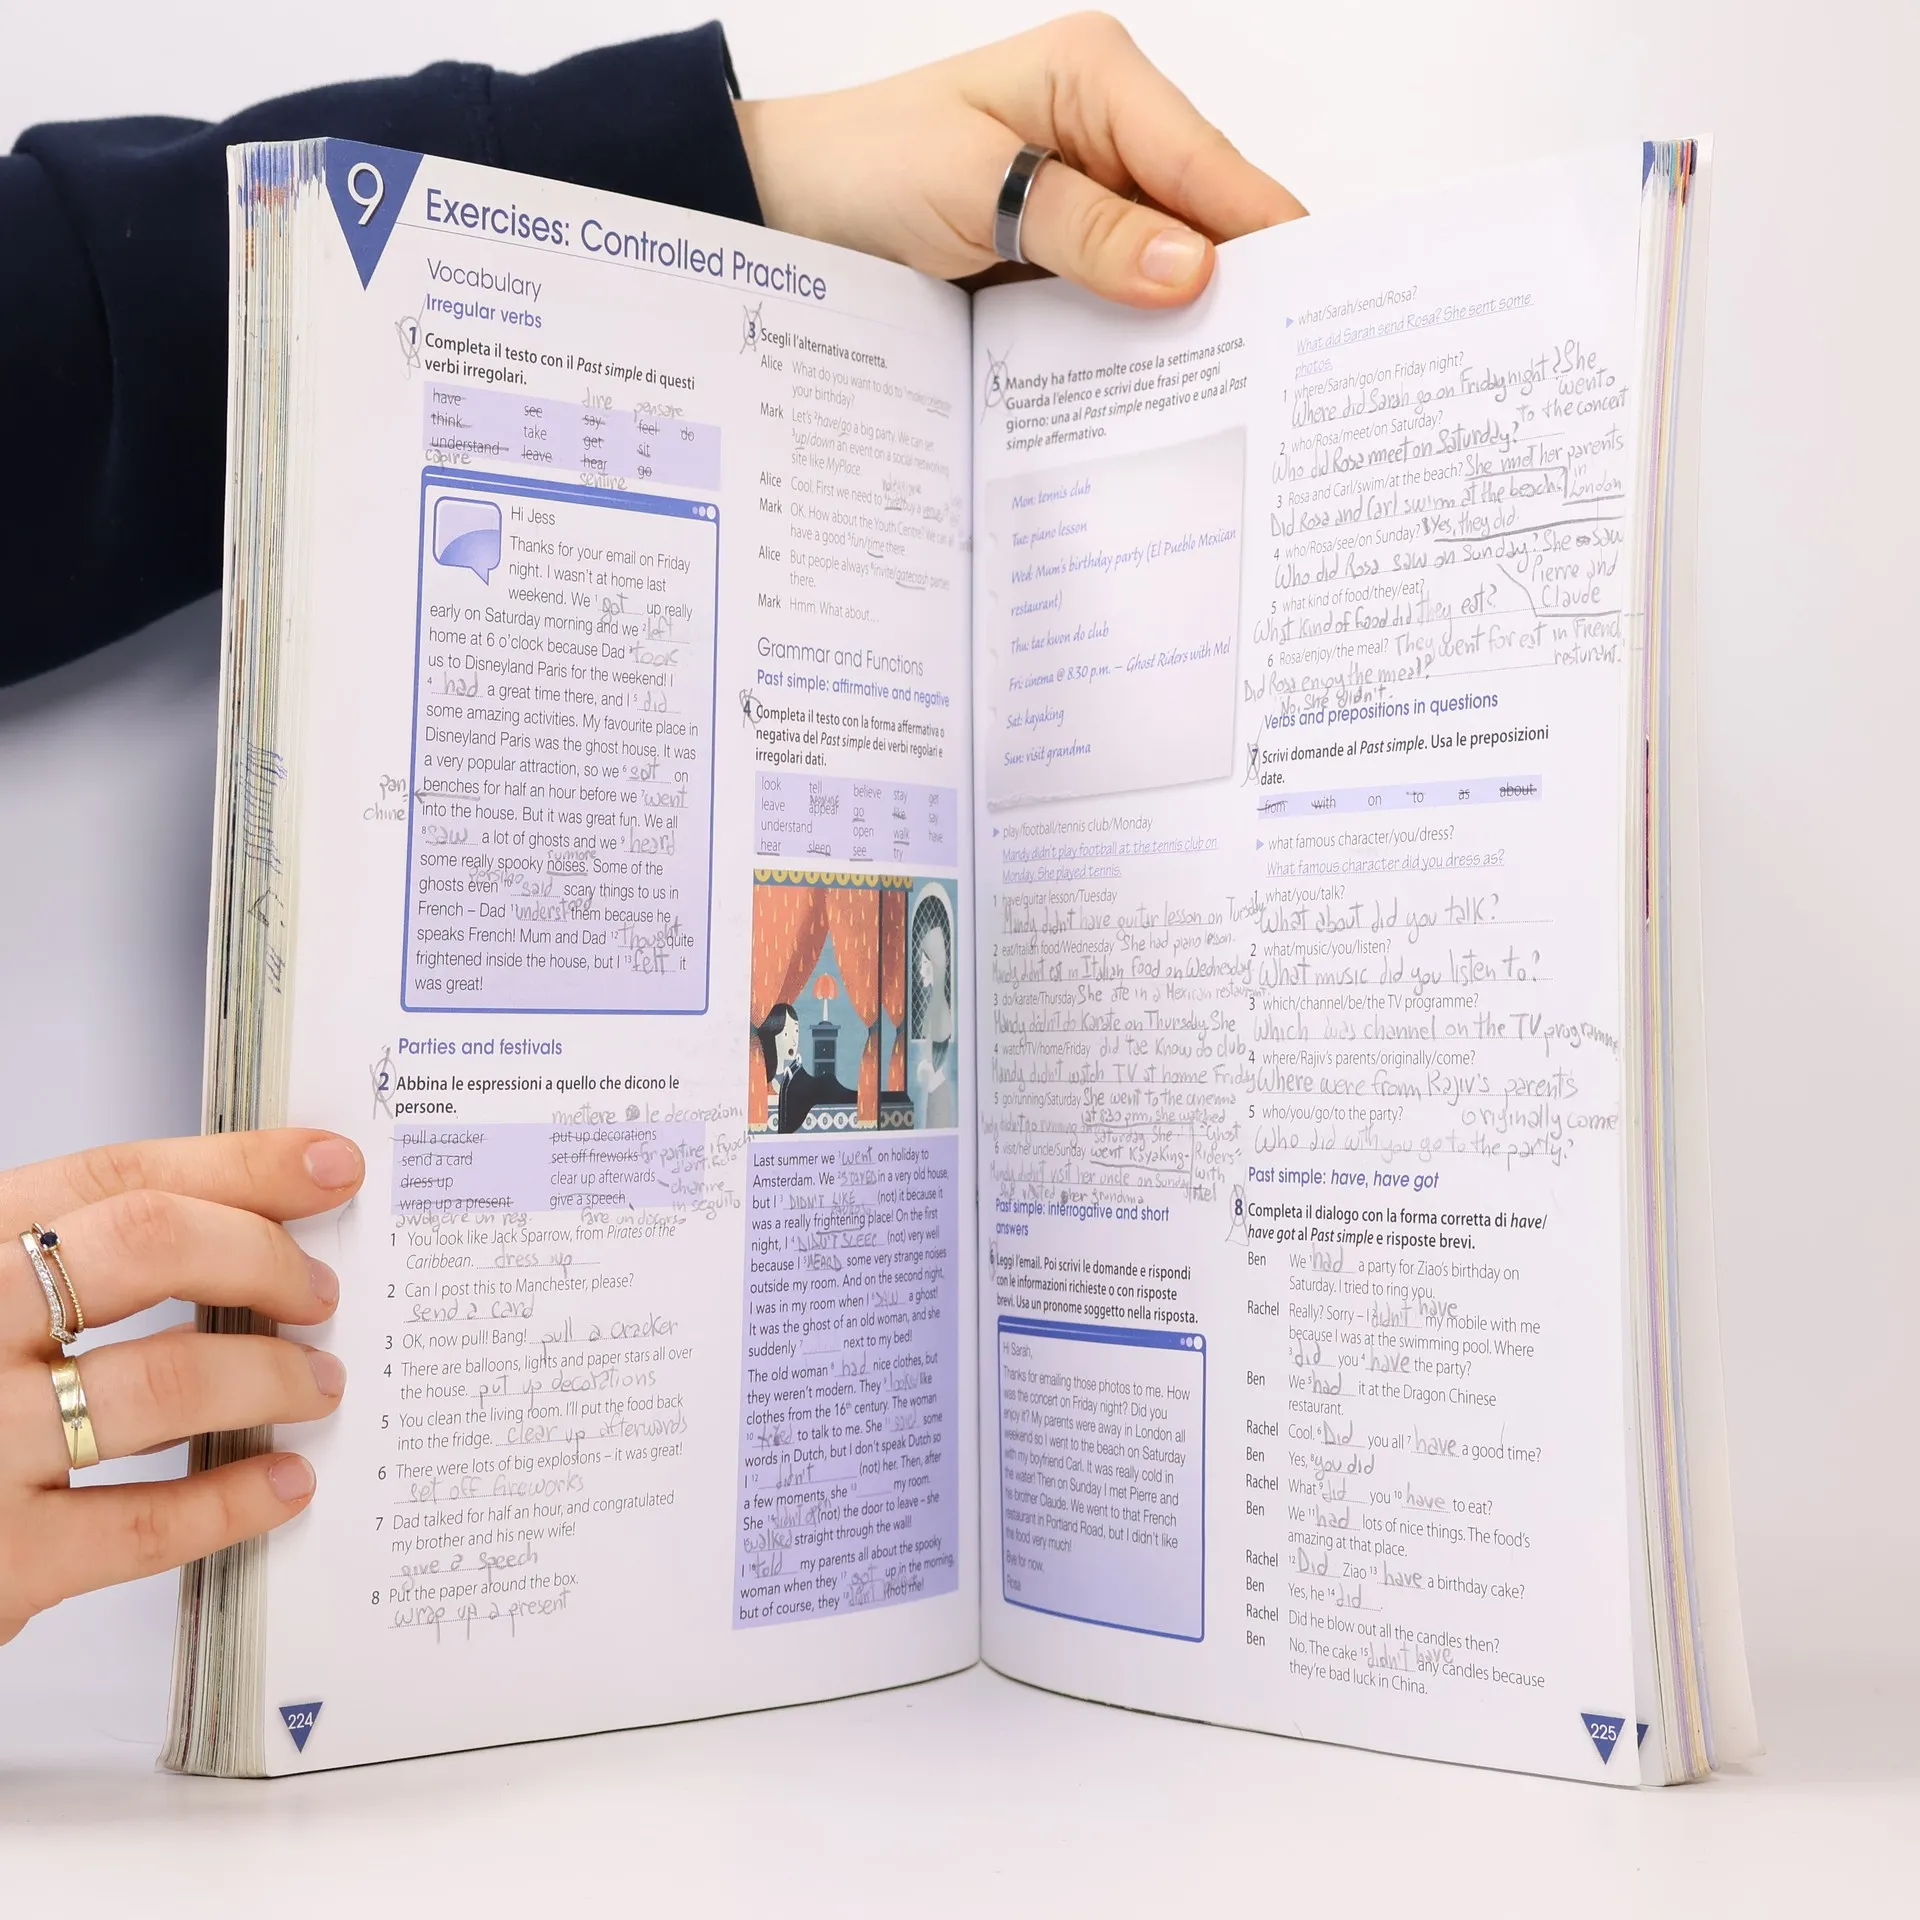 9
Exercises: Controlled Practice
Vocabulary
Irregular verbs
1 Completa il testo con il Past simple di questi
verbi irregolari.
dire pensare
have see say feel do
think take get sit
understand leave hear go
capire sentire
Hi Jess
Thanks for your email on Friday
night. I wasn't at home last
weekend. We 1 got up really
early on Saturday morning and we 2 left
home at 6 o'clock because Dad 3 took
us to Disneyland Paris for the weekend! I
4 had a great time there, and I 5 did
some amazing activities. My favourite place in
Disneyland Paris was the ghost house. It was
a very popular attraction, so we 6 sat on
benches for half an hour before we 7 went
pan
chine
into the house. But it was great fun. We all
8 saw a lot of ghosts and we 9 heard
rumore
some really spooky noises. Some of the
persino
ghosts even 10 said scary things to us in
French – Dad 11 understood them because he
speaks French! Mum and Dad 12 thought quite
frightened inside the house, but I 13 felt it
was great!
Parties and festivals
2 Abbina le espressioni a quello che dicono le
persone.
mettere le decorazioni
pull a cracker put up decorations
send a card set off fireworks
dress up clear up afterwards
wrap up a present give a speech
in seguito
1 You look like Jack Sparrow, from Pirates of the
Caribbean. dress up
2 Can I post this to Manchester, please?
send a card
3 OK, now pull! Bang! pull a cracker
4 There are balloons, lights and paper stars all over
the house. put up decorations
5 You clean the living room. I'll put the food back
into the fridge. clear up afterwards
6 There were lots of big explosions – it was great!
set off fireworks
7 Dad talked for half an hour, and congratulated
my brother and his new wife!
give a speech
8 Put the paper around the box.
wrap up a present
224
3 Scegli l'alternativa corretta.
Alice What do you want to do to 1make/celebrate
your birthday?
Mark Let's 2have/go a big party. We can set
3up/down an event on a social networking
site like MyPlace.
Alice Cool. First we need to
Mark OK. How about the Youth Centre? We can all
have a good 5fun/time there.
Alice But people always 6invite/gatecrash parties
there.
Mark Hmm. What about…
Grammar and Functions
Past simple: affirmative and negative
4 Completa il testo con la forma affermativa o
negativa del Past simple dei verbi regolari e
irregolari dati.
look tell believe stay get
leave appear go like say
understand open walk have
hear sleep see try
Last summer we 1 went on holiday to
Amsterdam. We 2 STAYED in a very old house,
but I 3 DIDN'T LIKE (not) it because it
was a really frightening place! On the first
night, I 4 DIDN'T SLEEP (not) very well
because I 5 HEARD some very strange noises
outside my room. And on the second night,
I was in my room when I 6 SAW a ghost!
It was the ghost of an old woman, and she
suddenly 7 next to my bed!
The old woman 8 had nice clothes, but
they weren't modern. They 9 looked like
clothes from the 16th century. The woman
10 tried to talk to me. She 11 said some
words in Dutch, but I don't speak Dutch so
I 12 didn't (not) her. Then, after
a few moments, she 13 my room.
She 14 didn't open (not) the door to leave – she
walked straight through the wall!
I 16 told my parents all about the spooky
woman when they 17 got up in the morning,
but of course, they 18 didn't (not) me!
5 Mandy ha fatto molte cose la settimana scorsa.
Guarda l'elenco e scrivi due frasi per ogni
giorno: una al Past simple negativo e una al Past
simple affermativo.
Mon: tennis club
Tue: piano lesson
Wed: Mum's birthday party (El Pueblo Mexican
restaurant)
Thu: tae kwon do club
Fri: cinema @ 8.30 p.m. – Ghost Riders with Mel
Sat: kayaking
Sun: visit grandma
play/football/tennis club/Monday
Mandy didn't play football at the tennis club on
Monday. She played tennis.
1 have/guitar lesson/Tuesday
Mandy didn't have guitar lesson on Tuesday
2 eat/Italian food/Wednesday She had piano lesson.
Mandy didn't eat in Italian food on Wednesday
3 do/karate/Thursday She ate in a Mexican restaurant
Mandy didn't do Karate on Thursday She
4 watch/TV/home/Friday did tae Know do club
Mandy didn't watch TV at home Friday
5 go/running/Saturday She went to the cinema
at 8.30 pm, she watched
didn't go running Saturday She "Ghost
6 visit/her uncle/Sunday went Kayaking Riders"
Mandy didn't visit her uncle on Sunday with Mel
She visited her grandma
Past simple: interrogative and short
answers
6 Leggi l'email. Poi scrivi le domande e rispondi
con le informazioni richieste o con risposte
brevi. Usa un pronome soggetto nella risposta.
Hi Sarah,
Thanks for emailing those photos to me. How
was the concert on Friday night? Did you
enjoy it? My parents were away in London all
weekend so I went to the beach on Saturday
with my boyfriend Carl. It was really cold in
the water! Then on Sunday I met Pierre and
his brother Claude. We went to that French
restaurant in Portland Road, but I didn't like
the food very much!
Bye for now,
Rosa
what/Sarah/send/Rosa?
What did Sarah send Rosa? She sent some
photos.
1 where/Sarah/go/on Friday night?
Where did Sarah go on Friday night? She
went to
2 who/Rosa/meet/on Saturday? to the concert
Who did Rosa meet on Saturday?
3 Rosa and Carl/swim/at the beach? She met her parents
in London
Did Rosa and Carl swim at the beach?
4 who/Rosa/see/on Sunday? Yes, they did.
Who did Rosa saw on Sunday? She saw
Pierre and
Claude
5 what kind of food/they/eat?
What Kind of food did they eat?
6 Rosa/enjoy/the meal? They went for est in French
resturant.
Did Rosa enjoy the meal?
No, She didn't.
Verbs and prepositions in questions
7 Scrivi domande al Past simple. Usa le preposizioni
date.
from with on to as about
what famous character/you/dress?
What famous character did you dress as?
1 what/you/talk?
What about did you talk?
2 what/music/you/listen?
What music did you listen to?
3 which/channel/be/the TV programme?
Which was channel on the TV programme
4 where/Rajiv's parents/originally/come?
Where were from Rajiv's parents
originally come
5 who/you/go/to the party?
Who did with you go to the party?
Past simple: have, have got
8 Completa il dialogo con la forma corretta di have/
have got al Past simple e risposte brevi.
Ben We 1 had a party for Ziao's birthday on
Saturday. I tried to ring you.
Rachel Really? Sorry – I 2 didn't have my mobile with me
because I was at the swimming pool. Where
3 did you 4 have the party?
Ben We 5 had it at the Dragon Chinese
restaurant.
Rachel Cool. 6 Did you all 7 have a good time?
Ben Yes, 8 you did
Rachel What 9 did you 10 have to eat?
Ben We 11 had lots of nice things. The food's
amazing at that place.
Rachel 12 Did Ziao 13 have a birthday cake?
Ben Yes, he 14 did.
Rachel Did he blow out all the candles then?
Ben No. The cake 15 didn't have any candles because
they're bad luck in China.
225